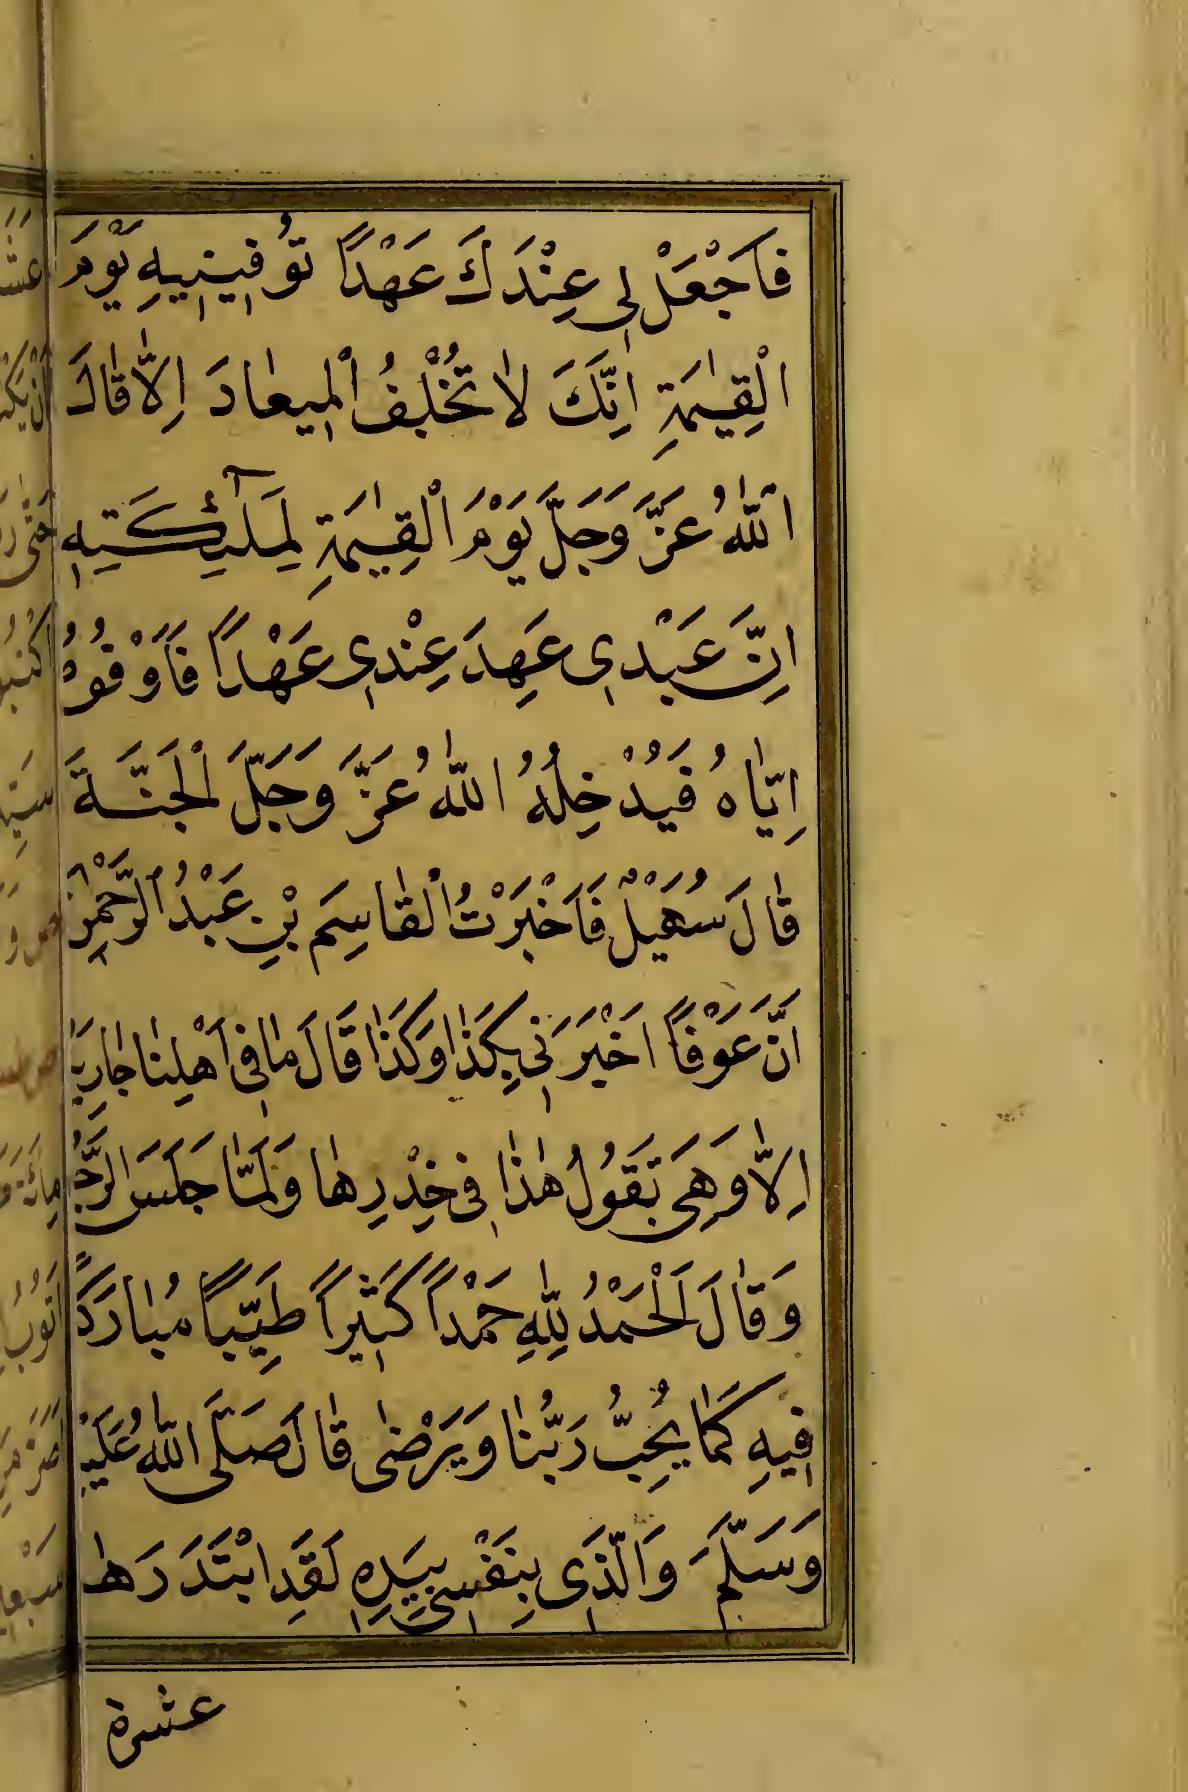 فَاجْعَلْ لِي عِنْدَكَ عَهْدًا تُوفِينِيهِ يَوْمَ
الْقِيٰمَةِ اِنَّكَ لَا تُخْلِفُ الْمِيعَادَ اِلَّا قَالَ
اللّٰهُ عَزَّ وَجَلَّ يَوْمَ الْقِيٰمَةِ لِمَلٰٓئِكَتِهِ
اِنَّ عَبْدِي عَهِدَ عِنْدِي عَهْدًا فَاَوْفُوهُ
اِيَّاهُ فَيُدْخِلُهُ اللّٰهُ عَزَّ وَجَلَّ الْجَنَّةَ
قَالَ سُهَيْلٌ فَاَخْبَرْتُ الْقَاسِمَ بْنِ عَبْدُ الرَّحْمٰنِ
اَنَّ عَوْفًا اَخْبَرَنِي بِكَذَا وَكَذَا قَالَ مَا فِي اَهْلِنَا جَارِيَة
اِلَّا وَهِيَ تَقُولُ هٰذَا فِي خِدْرِهَا وَلَمَّا جَلَسَ الرَّجُ
وَقَالَ اَلْحَمْدُ لِلّٰهِ حَمْدًا كَثِيرًا طَيِّبًا مُبَارَكًا
فِيهِ كَمَا يُحِبُّ رَبُّنَا وَيَرْضٰى قَالَ صَلَّى اللّٰهُ عَلَيْهِ
وَسَلَّمَ وَالَّذِي نَفْسِي بِيَدِهِ لَقَدِ ابْتَدَرَهَا
عشرة